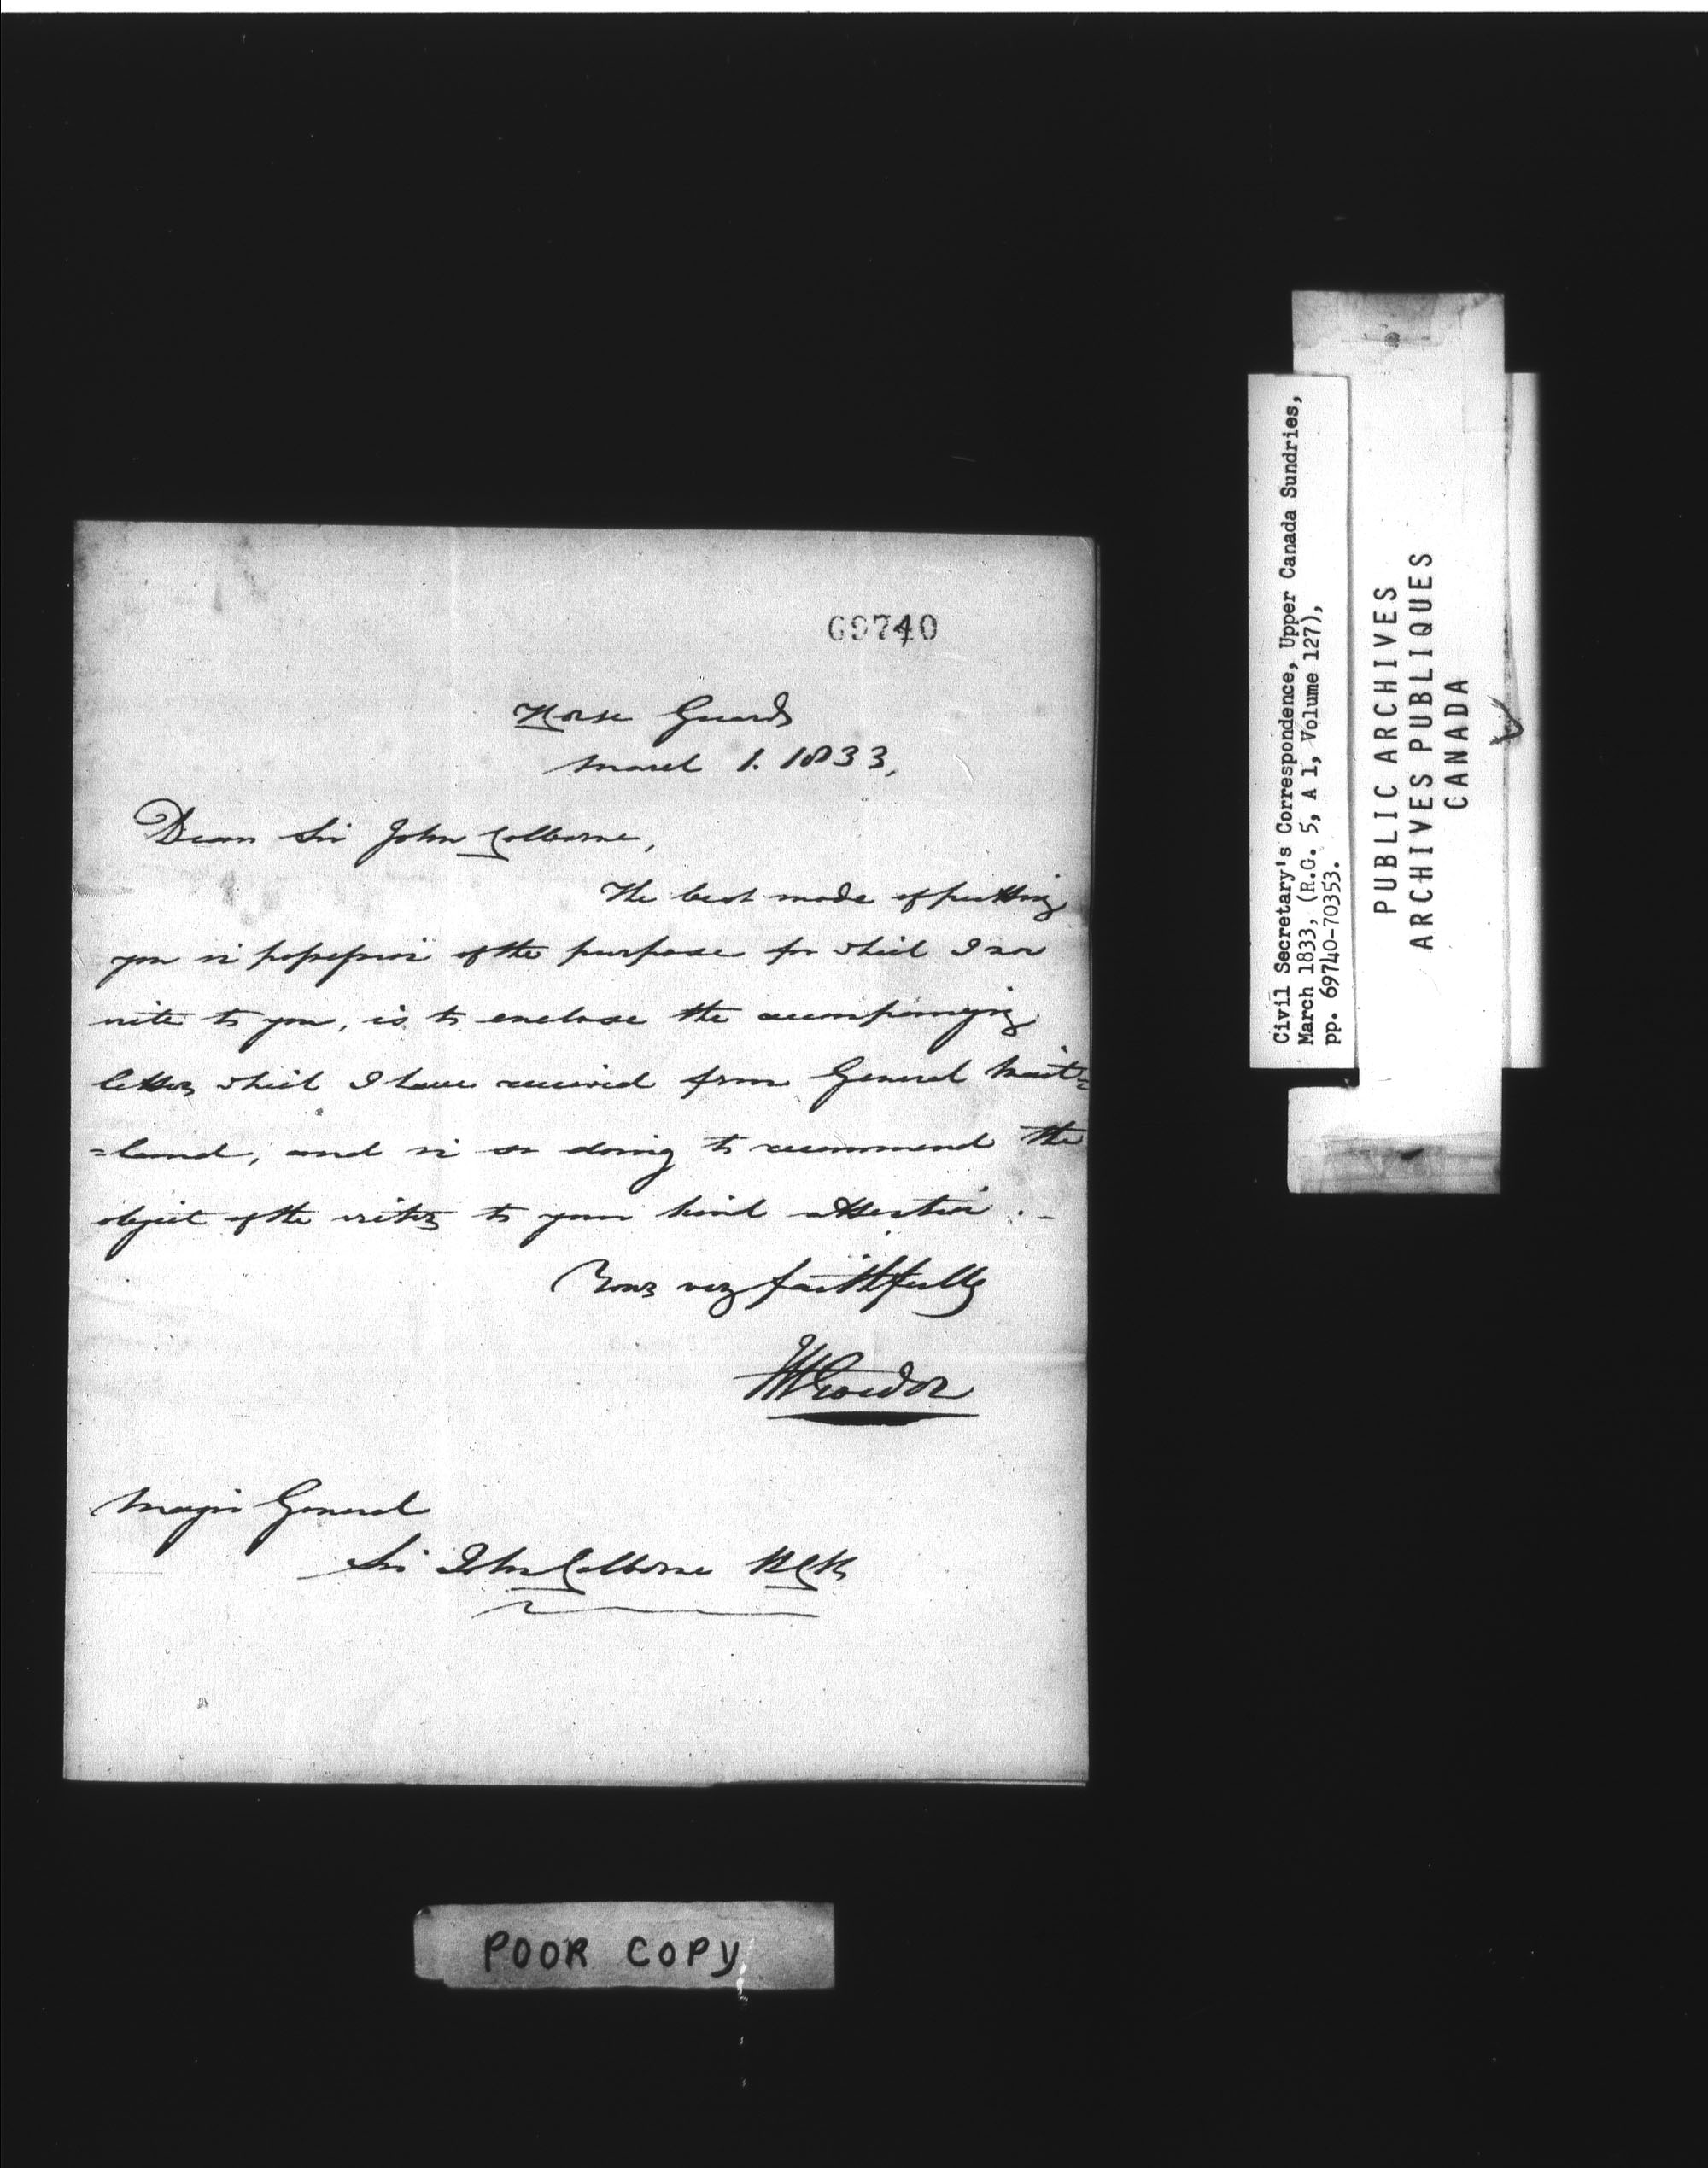 69740
Horse Guards
March 1. 1833,
Dear Sir John Colborne,
The best mode of putting
you in possession of the purpose for which I now
write to you, is to enclose the accompanying
letter which I have received from General Mait=
=land, and in so doing to recommend the
object of the writer to your kind attention. _
Yours very faithfully
Major General
Sir John Colborne KCB
Civil Secretary's Correspondence, Upper Canada Sundries,
March 1833, (R.G. 5, A 1, Volume 127),
pp. 69740-70353.
PUBLIC ARCHIVES
ARCHIVES PUBLIQUES
CANADA
POOR COPY